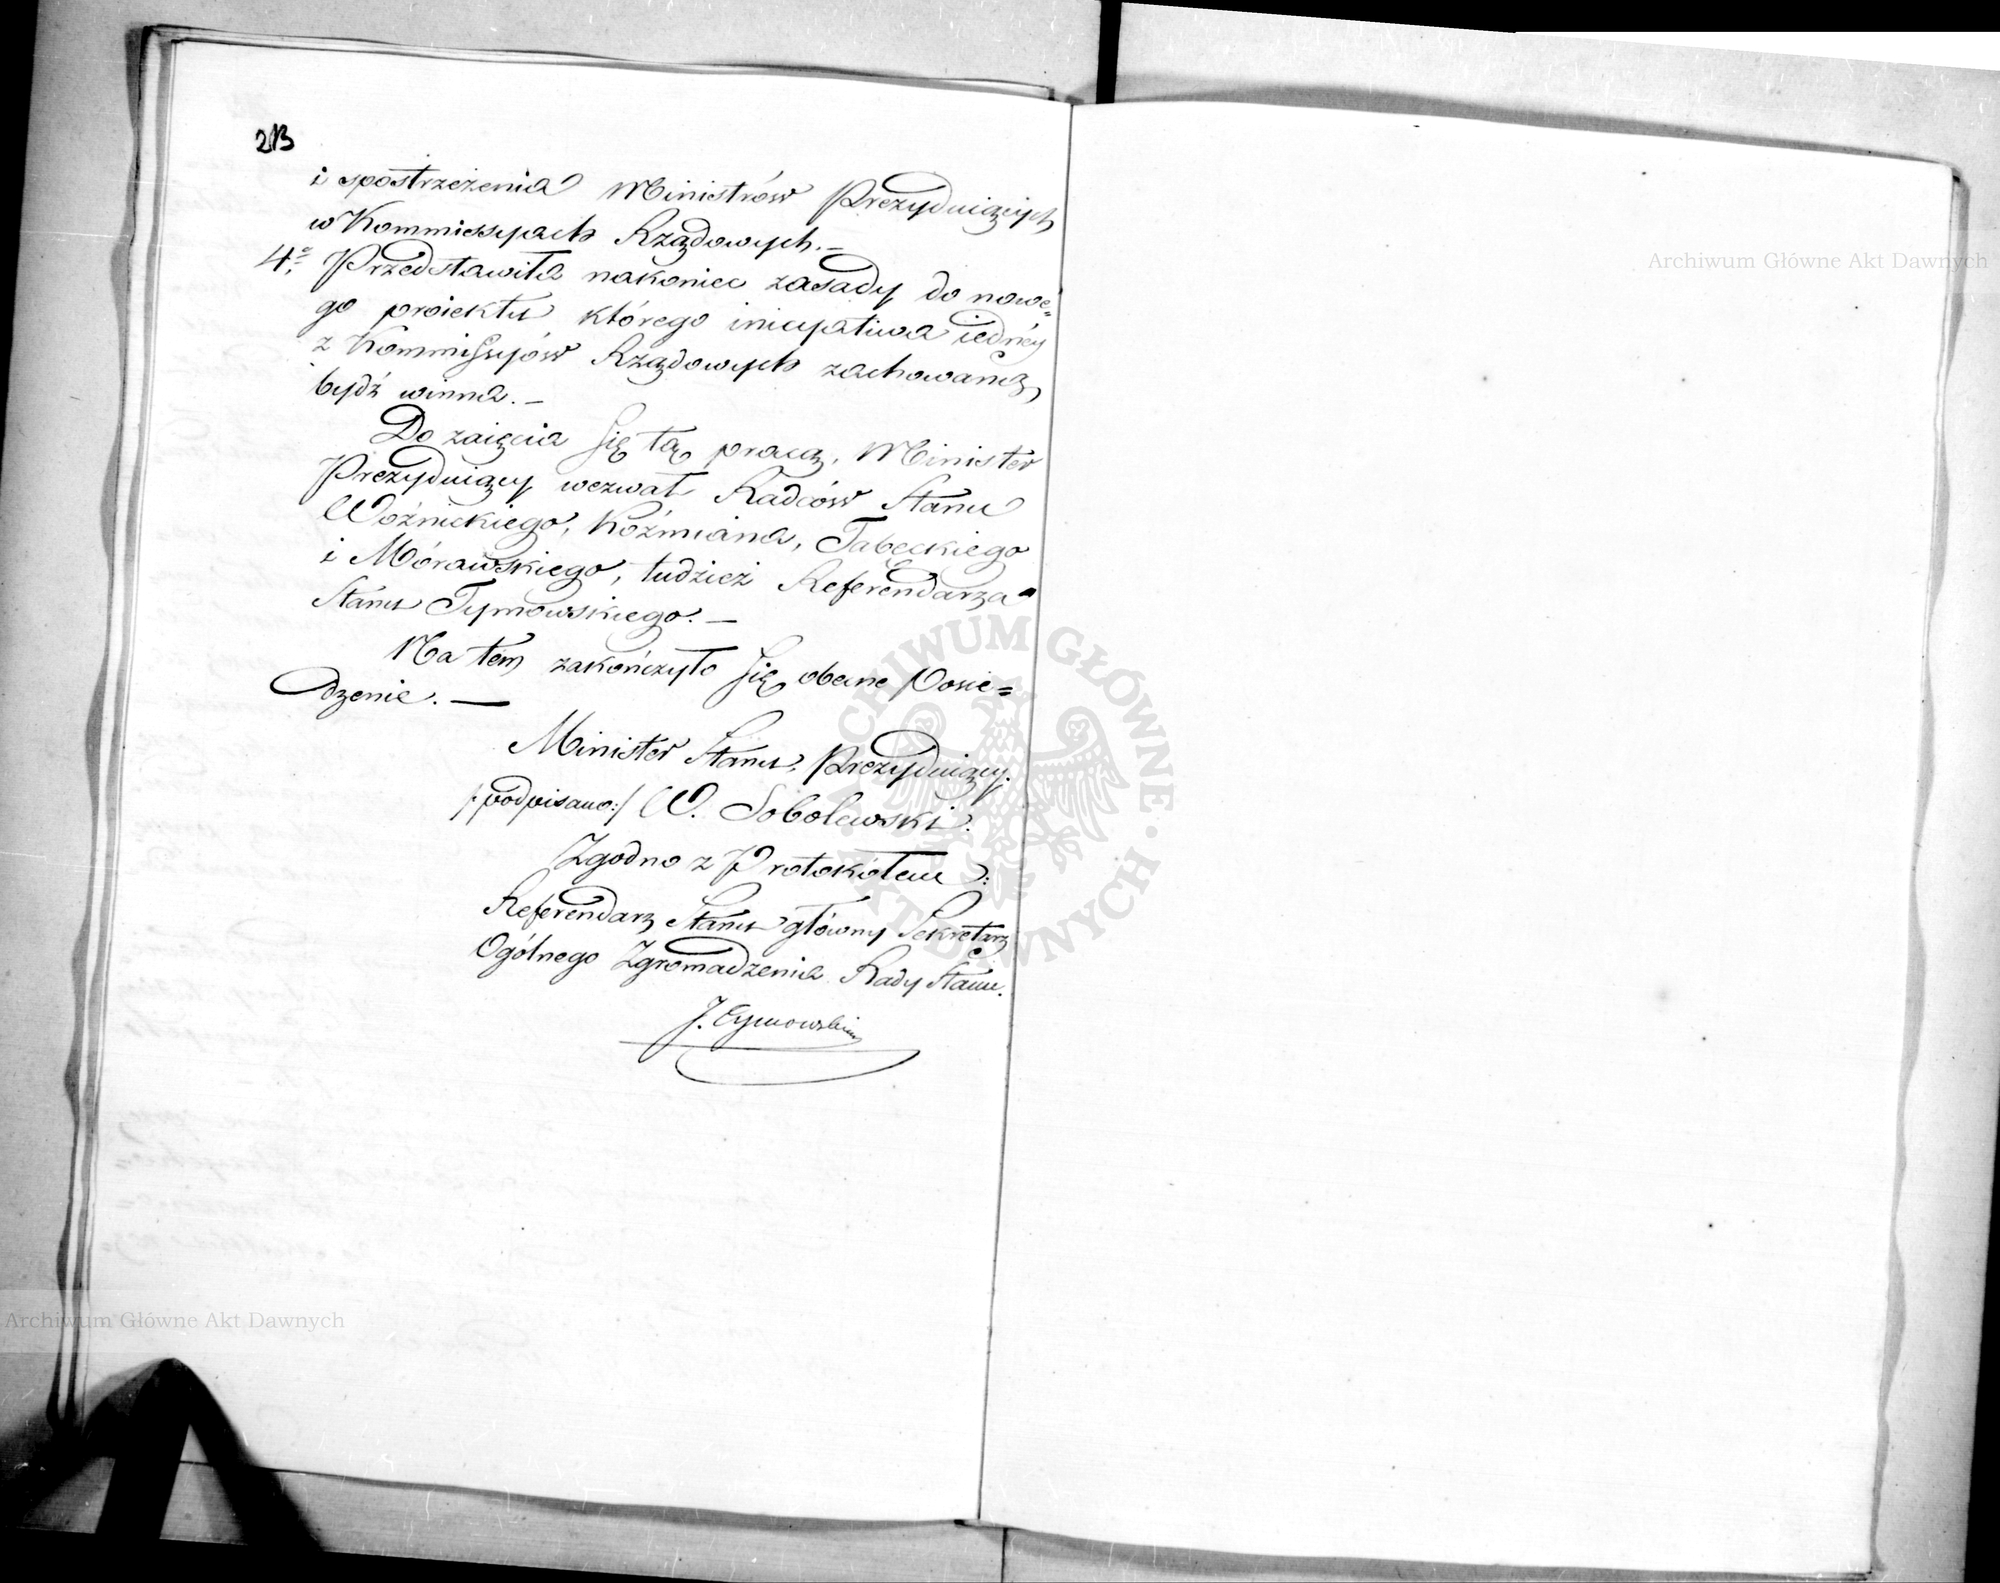 213
i spostrzeżenia Ministrów Prezyduiących
w Kommissyach Rządowych. –
4.° Przedstawiła nakoniec zasady do nowe=
go proiektu którego inicyatiwa iednéy
z Kommissyów Rządowych zachowaną
bydź winna. –
Do zaięcia się tą pracą, Minister
Prezyduiący wezwał Radców Stanu
Woźnickiego, Koźmiana, Tabęckiego
i Mórawskiego, tudzież Referendarza
Stanu Tymowskiego. –
Na tém zakończyło się obecne Posie=
dzenie. —
Minister Stanu, Prezyduiący.
/:podpisano:/ W. Sobolewski.
Zgodno z Protokółem:
Referendarz Stanu główny Sekretarz
Ogólnego Zgromadzenia Rady Stanu.
J. Tymowski
Archiwum Główne Akt Dawnych
Archiwum Główne Akt Dawnych
ARCHIWUM GŁÓWNE AKT DAWNYCH